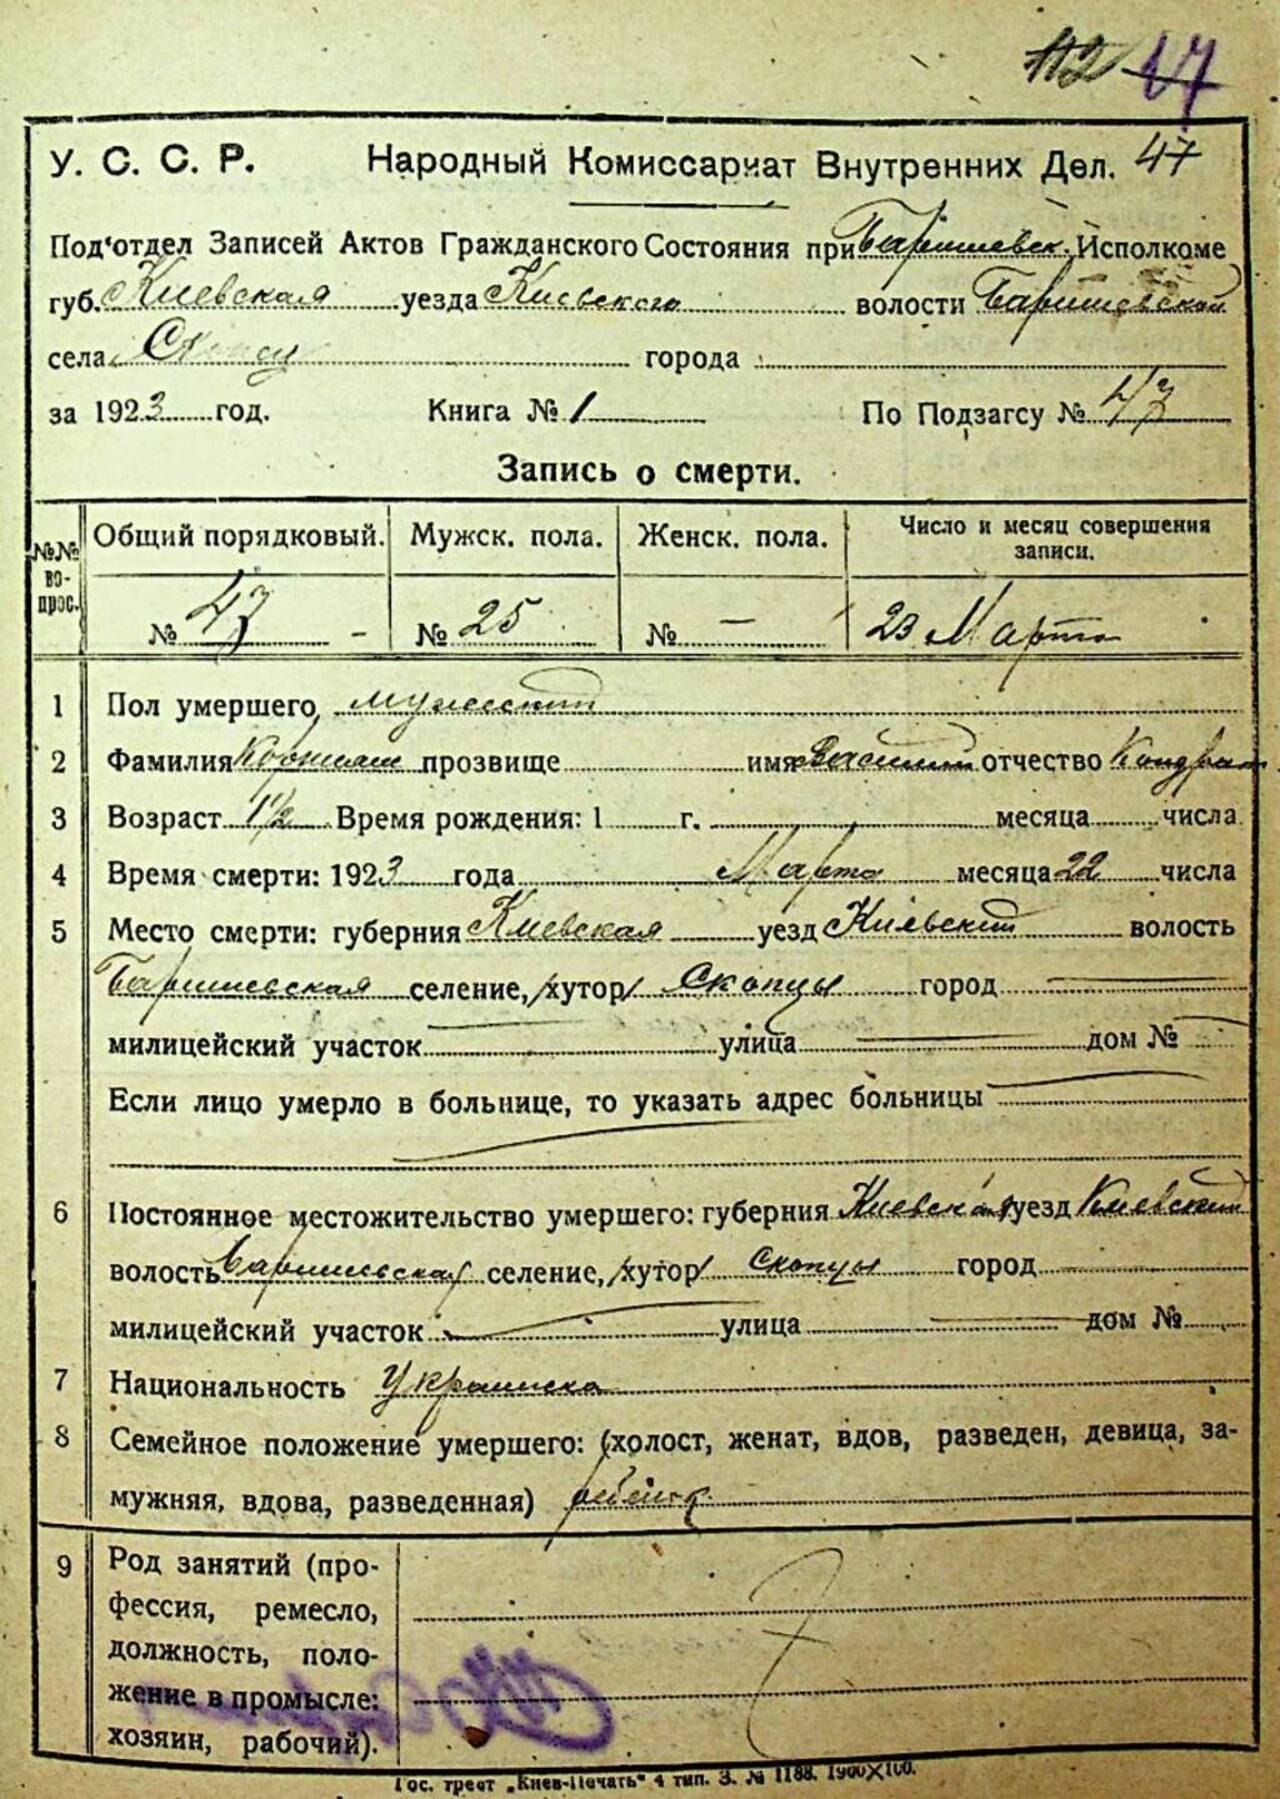 112 47
У. С. С. Р. Народный Комиссариат Внутренних Дел. 47
Под'отдел Записей Актов Гражданского Состояния при Баришевск. Исполкоме
губ. Киевская уезда Киевского волости Баришевской
села Скопцы города
за 1923 год. Книга № 1 По Подзагсу № 47
Запись о смерти.
№№ во- прос. Общий порядковый. Мужск. пола. Женск. пола. Число и месяц совершения записи.
№ 47 - № 25 № — 23 Марта
1 Пол умершего, мужеский
2 Фамилия прозвище имя Василий отчество Кондрат
3 Возраст 1½ Время рождения: 1 г. месяца числа
4 Время смерти: 1923 года Марта месяца 22 числа
5 Место смерти: губерния Киевская уезд Киевский волость
Баришевская селение, /хутор/ Скопцы город
милицейский участок улица дом №
Если лицо умерло в больнице, то указать адрес больницы
6 Постоянное местожительство умершего: губерния Киевская уезд Киевский
волость Баришевская селение, /хутор/ Скопцы город
милицейский участок улица дом №
7 Национальность Украинска
8 Семейное положение умершего: (холост, женат, вдов, разведен, девица, за-
мужняя, вдова, разведенная) ребенок
9 Род занятий (про-
фессия, ремесло,
должность, поло-
жение в промысле:
хозяин, рабочий).
Гос. трест „Киев-Печать" 4 тип. З. № 1188. 1900×100.